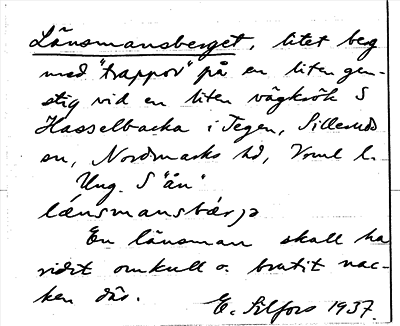 Länsmansberget, litet berg
med "trappor" på en liten gen-
stig vid en liten vägkrök S
Hasselbacka i Tegen, Silleruds
sn, Nordmarks hd, Vrml l.
Ung. S "ån"
lænsmansbærjə
En länsman skall ha
ridit omkull o. brutit nac-
ken där.
E. Silfors 1937.